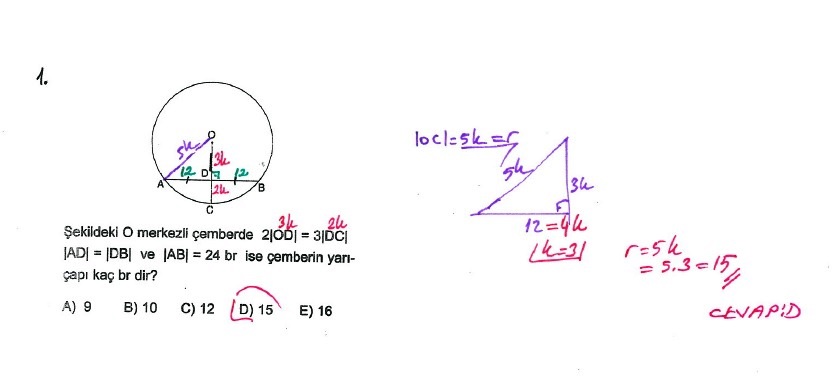 1.
O
5k
3k
12
D
12
A
2k
B
C
3k 2k
Şekildeki O merkezli çemberde 2|OD| = 3|DC|
|AD| = |DB| ve |AB| = 24 br ise çemberin yarı-
çapı kaç br dir?
A) 9 B) 10 C) 12 D) 15 E) 16
|OC|=5k=r
5k
3k
12=4k
k=3
r=5k
=5.3=15
CEVAP:D